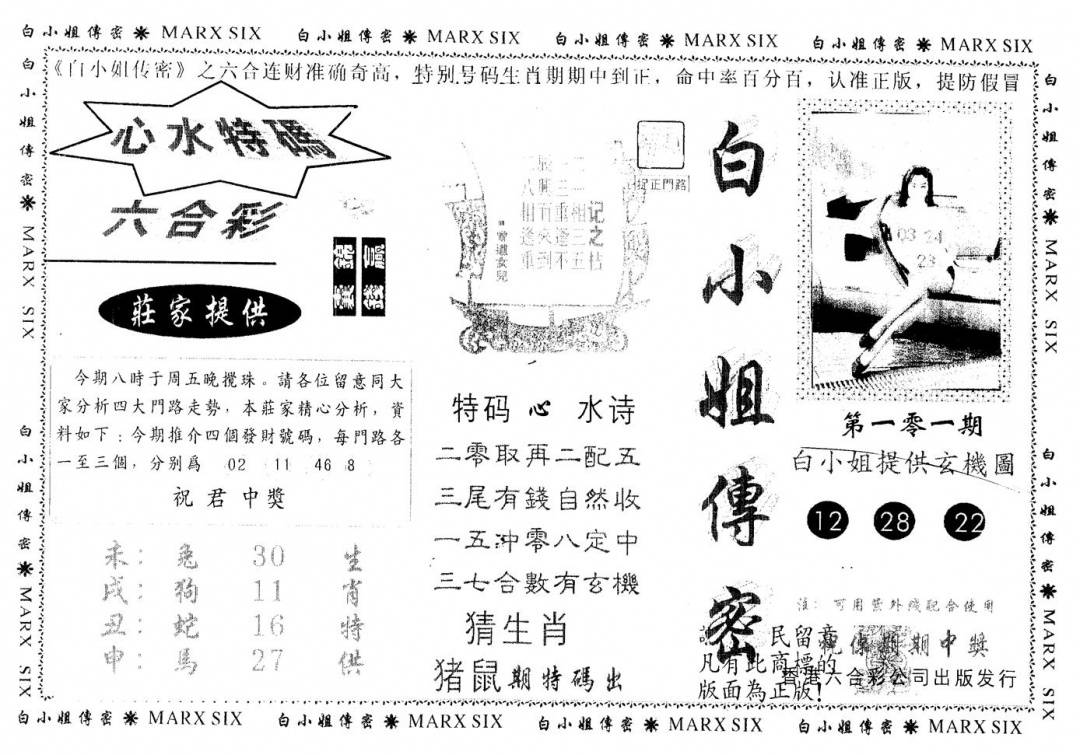 白小姐傳密 ❋ MARX SIX 白小姐傳密 ❋ MARX SIX 白小姐傳密 ❋ MARX SIX 白小姐傳密 ❋ MARX SIX
《白小姐传密》之六合连财准确奇高，特别号码生肖期期中到正，命中率百分百，认准正版，提防假冒
白小姐傳密 ❋ MARX SIX
白小姐傳密 ❋ MARX SIX
心水特碼
六合彩
莊家提供
今期八時于周五晚攪珠。請各位留意同大
家分析四大門路走勢，本莊家精心分析，資
料如下：今期推介四個發財號碼，每門路各
一至三個，分别爲 02 11 46 8
祝君中獎
未：兔 30 生
戌：狗 11 肖
丑：蛇 16 特
申：馬 27 供
正門路
记之
曾道女兒
特码心水诗
二零取再二配五
三尾有錢自然收
一五冲零八定中
三七合數有玄機
猜生肖
猪鼠期特碼出
白小姐傳密
民留意
凡有此商標的
版面為正版!
03 24
23
第一零一期
白小姐提供玄機圖
12 28 22
注：可用紫外线配合使用
祝你期期中獎
香港六合彩公司出版发行
白小姐傳密 ❋ MARX SIX
白小姐傳密 ❋ MARX SIX
白小姐傳密 ❋ MARX SIX 白小姐傳密 ❋ MARX SIX 白小姐傳密 ❋ MARX SIX 白小姐傳密 ❋ MARX SIX